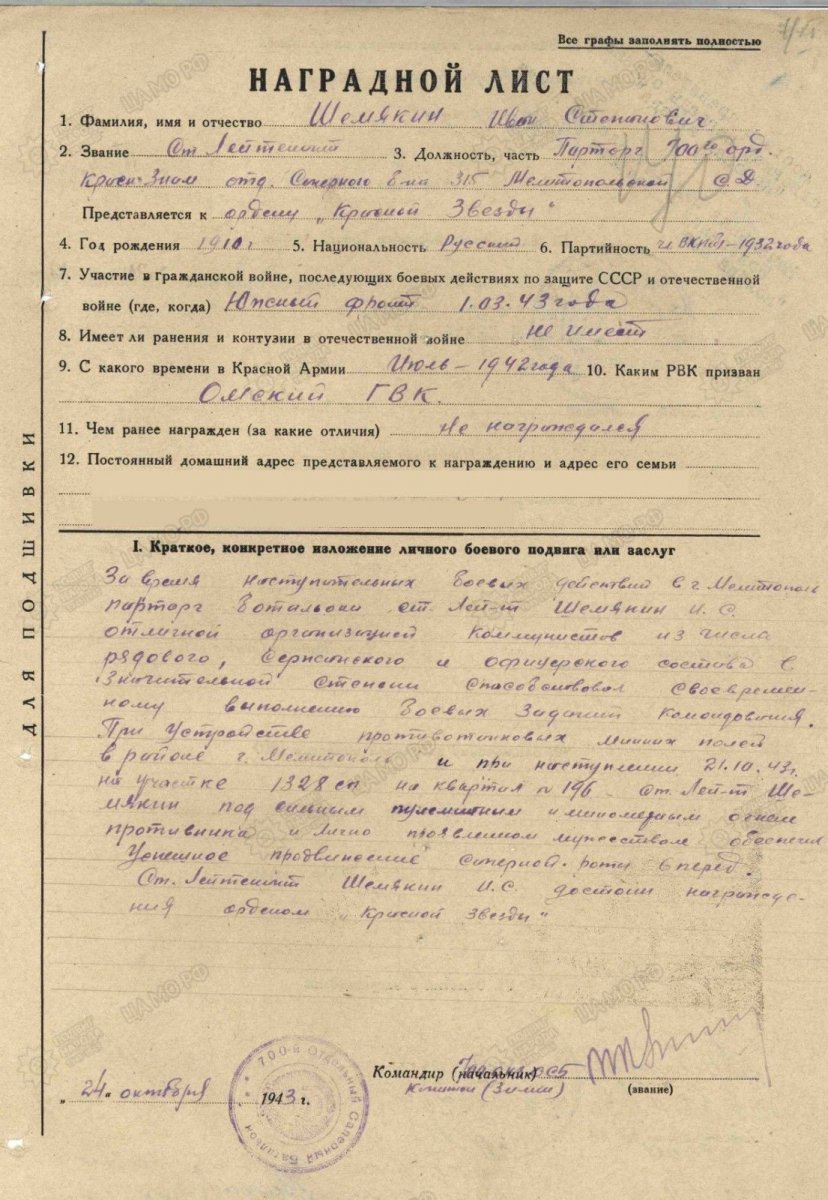 Все графы заполнять полностью
НАГРАДНОЙ ЛИСТ
1. Фамилия, имя и отчество Шемякин Иван Степанович
2. Звание Ст. Лейтенант 3. Должность, часть Парторг 700го орд.
Красн. Знам отд. Саперного б-на 315 Мелитопольской С.Д.
Представляется к ордену „Красной Звезды"
4. Год рождения 1910 г. 5. Национальность Русский 6. Партийность чл ВКП/б/ – 1932 года
7. Участие в гражданской войне, последующих боевых действиях по защите СССР и отечественной
войне (где, когда) Южный фронт 1.03.43 года
8. Имеет ли ранения и контузии в отечественной войне не имеет
9. С какого времени в Красной Армии Июль – 1942 года 10. Каким РВК призван
Омский ГВК.
11. Чем ранее награжден (за какие отличия) Не награждался
12. Постоянный домашний адрес представляемого к награждению и адрес его семьи
ДЛЯ ПОДШИВКИ
I. Краткое, конкретное изложение личного боевого подвига или заслуг
За время наступательных боевых действий в г. Мелитополь
парторг батальона ст. Лей-т Шемякин И.С.
отличной организацией коммунистов из числа
рядового, сержанского и офицерского состава в
значительной степени способствовал своевремен-
ному выполнению боевых заданий командования.
При устройстве противотанковых минных полей
в районе г. Мелитополь и при наступлении 21.10.43 г.
на участке 1328 сп на квартал № 196 – ст. Лей-т Ше-
мякин под сильным пулеметным и минометным огнем
противника и лично проявленном мужеством обеспечил
успешное продвижение саперной роты вперед.
Ст. Лейтенант Шемякин И.С. достоин награжде-
ния орденом „Красной Звезды"
Командир (начальник)
Капитан (Зимин) (звание)
„24" октября 1943 г.
700-й Отдельный Саперный Батальон
ЦАМО РФ